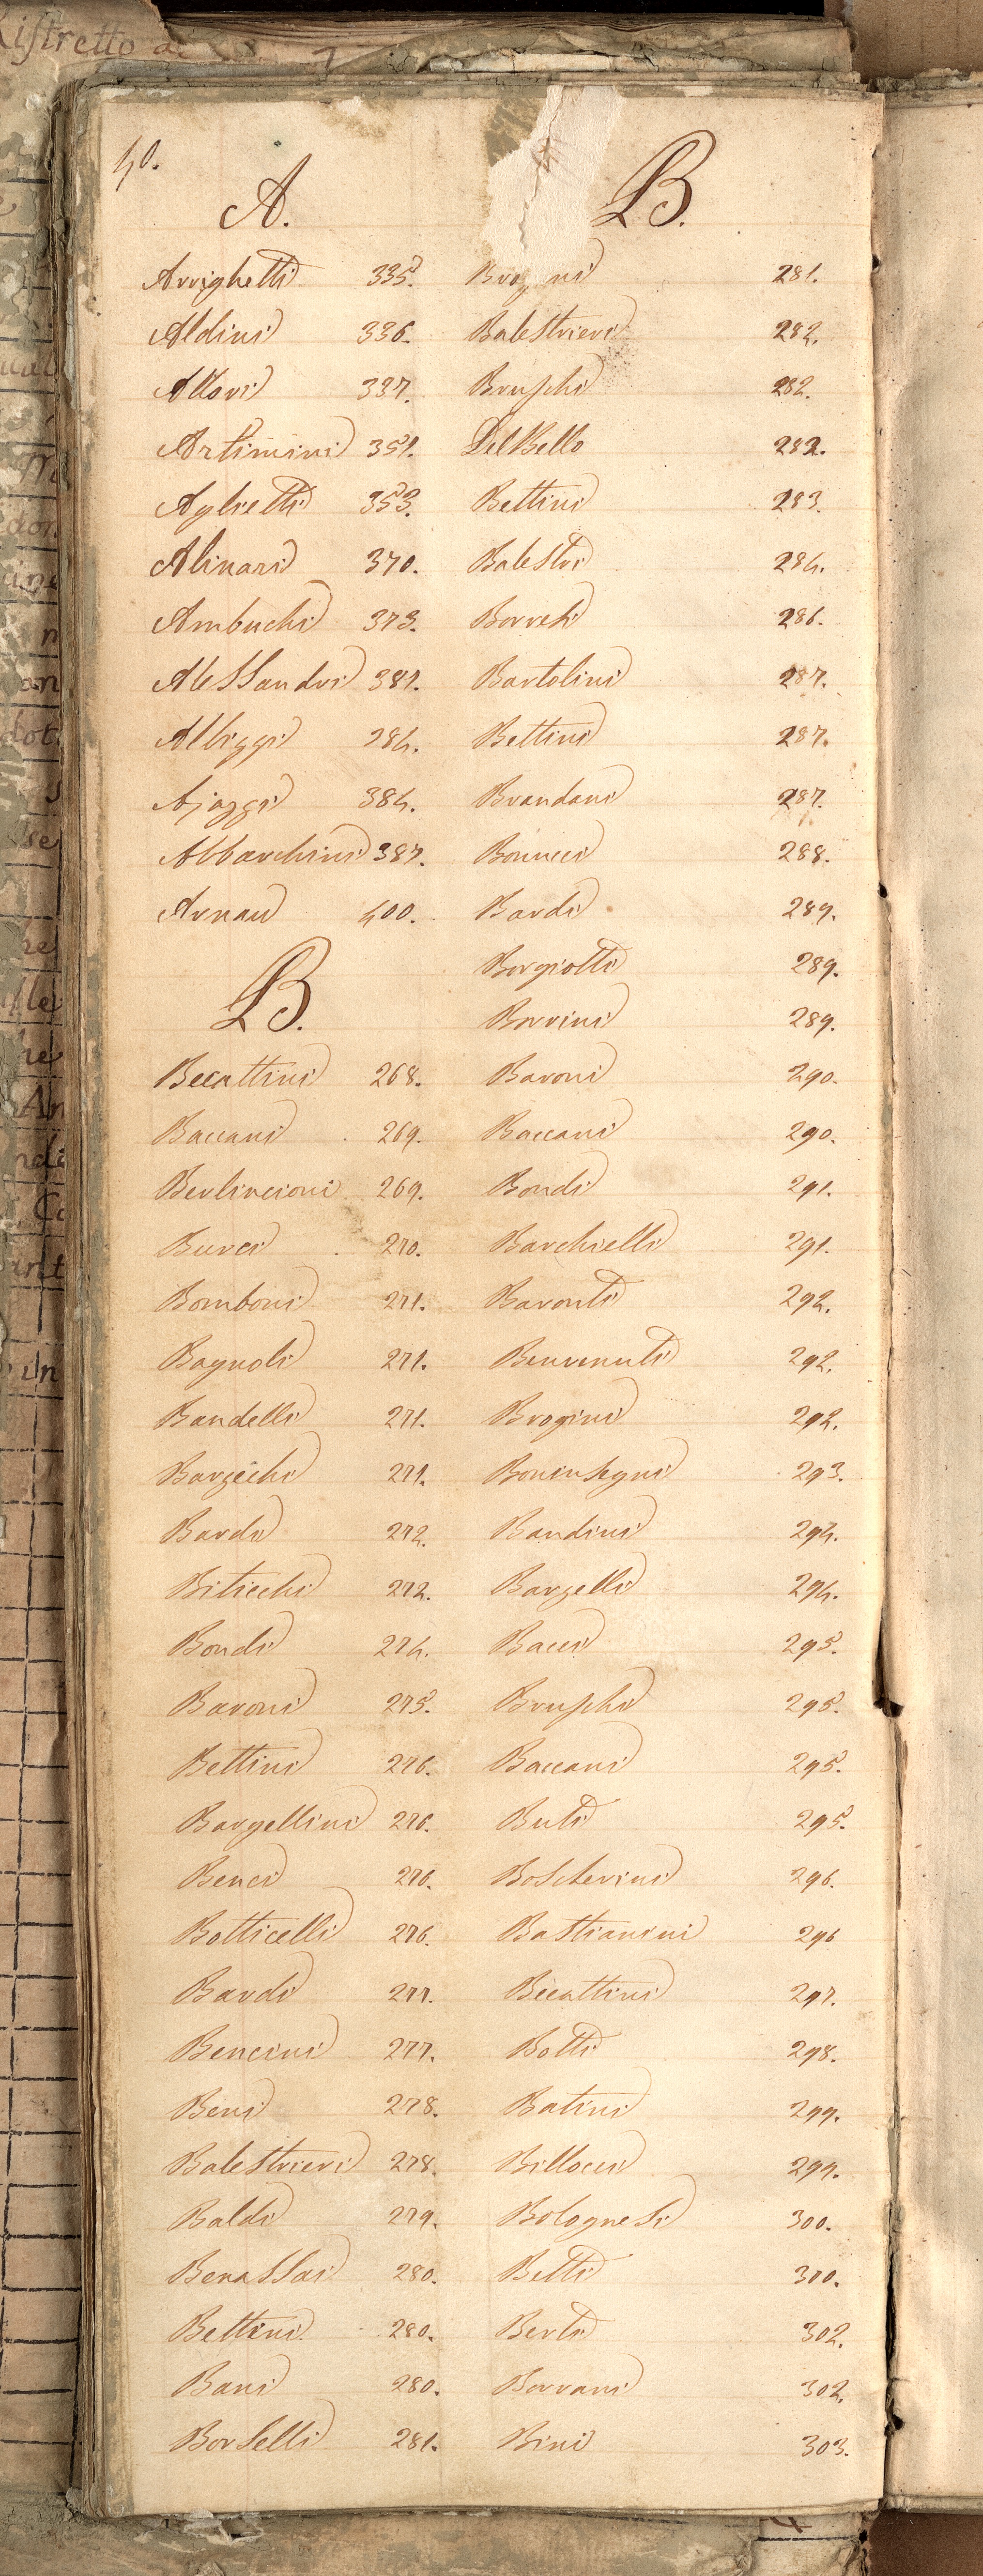 Ristretto de
40.
A.
Arrighetti 335.
Aldini 336.
Allori 337.
Artimini 351.
Aglietti 353.
Alinari 370.
Ambuchi 373.
Alessandri 381.
Albizzi 384.
Ajazzi 384.
Abbarchini 387.
Arnau 400.
B.
Becattini 268.
Baccani 269.
Berlincioni 269.
Burci 270.
Bomboni 271.
Bagnoli 271.
Bandelli 271.
Barzichi 271.
Bardi 272.
Biticchi 272.
Bondi 274.
Baroni 275.
Bettini 276.
Bargellini 276.
Benci 276.
Botticelli 276.
Bardi 277.
Bencini 277.
Beni 278.
Balestrieri 278.
Baldi 279.
Benassai 280.
Bettini 280.
Bani 280.
Borselli 281.
B.
281.
Balestrieri 282.
Bruschi 282.
Del Bello 282.
Bettini 283.
Balestri 284.
Borreti 286.
Bartolini 287.
Bettini 287.
Brandani 287.
Bonucci 288.
Bardi 289.
Borgiotti 289.
Borrini 289.
Baroni 290.
Baccani 290.
Bondi 291.
Barchielli 291.
Baronti 292.
Benvenuti 292.
Brogini 292.
Boninsegni 293.
Bandini 294.
Barzelli 294.
Bacci 295.
Bruschi 295.
Baccani 295.
Buti 295.
Boscherini 296.
Bastianini 296
Becattini 297.
Botti 298.
Batini 299.
Billocci 299.
Bolognesi 300.
Betti 300.
Berti 302.
Borrani 302.
Bini 303.